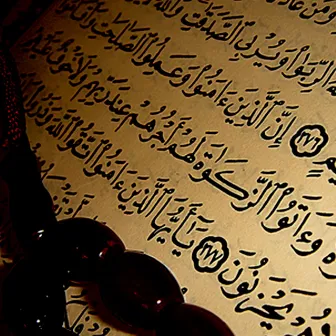 ٱلرِّبَوٰا۟ وَيُرْبِى ٱلصَّدَقَٰتِ وَٱللَّهُ
۝٢٧٦ إِنَّ ٱلَّذِينَ ءَامَنُوا۟ وَعَمِلُوا۟ ٱلصَّٰلِحَٰتِ وَأَقَامُوا۟
وَءَاتَوُا۟ ٱلزَّكَوٰةَ لَهُمْ أَجْرُهُمْ عِندَ رَبِّهِمْ وَلَا خَوْفٌ عَلَيْهِمْ
يَحْزَنُونَ ۝٢٧٧ يَٰٓأَيُّهَا ٱلَّذِينَ ءَامَنُوا۟ ٱتَّقُوا۟ ٱللَّهَ وَذَرُوا۟